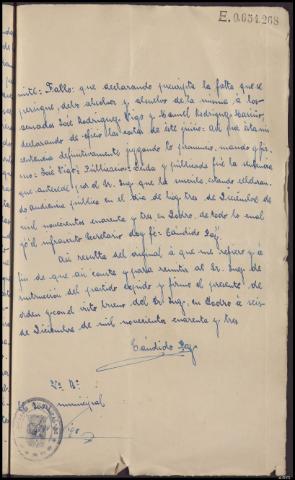 E.0.034.268
mité: Fallo: que declarando prescrita la falta que se
persigue, debo absolver y absuelvo de la misma a los
acusados José Rodriguez Vigo y Manuel Rodriguez Mariño,
declarando de oficio las costas de este juicio: así por esta mi
sentencia definitivamente juzgando lo pronuncio, mando y fir-
mo: José Vigo: Publicacion: Leida y publicada fué la sentencia
que antecede por el Sr. Juez que la suscribe estando celebran-
do audiencia pública en el dia de hoy tres de Diciembre de
mil novecientos cuarenta y tres en Dodro, de todo lo cual
yó el infrascrito Secretario doy fé: Cándido Rey
Así resulta del original á que me refiero y á
fin de que así conste y para remitir al Sr. Juez de
instrucción del partido expido y firmo el presente de
orden y con el visto bueno del Sr. Juez, en Dodro á seis
de Diciembre de mil novecientos cuarenta y tres
Cándido Rey
Vº. Bº.
municipal
Vigo